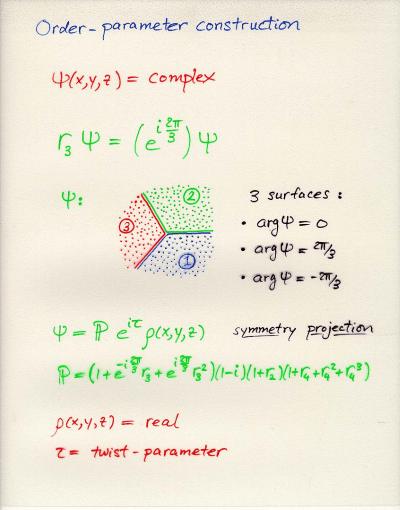 Order-parameter construction
Ψ(x,y,z) = complex
r₃ Ψ = (e^{i 2π/3}) Ψ
Ψ:
②
③
①
3 surfaces :
• argΨ = 0
• argΨ = 2π/3
• argΨ = -2π/3
Ψ = ℙ e^{iτ} ρ(x,y,z) symmetry projection
ℙ = (1+e^{-i 2π/3} r₃+e^{i 2π/3} r₃²)(1-i)(1+r₂)(1+r₄+r₄²+r₄³)
ρ(x,y,z) = real
τ = twist-parameter